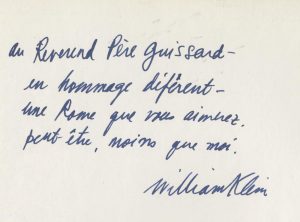 au Reverend Père Guissard -
en hommage différent -
une Rome que vous aimerez,
peut-être, moins que moi.
William Klein